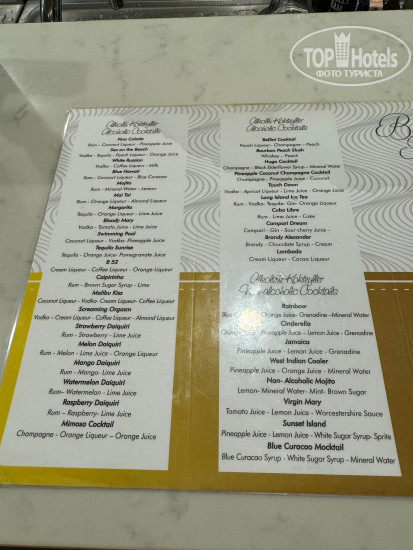 TOP Hotels
ФОТО ТУРИСТА
Alkollü Kokteyller
Alcoholic Cocktails
Pina Colada
Rum - Coconut Liqueur - Pineapple Juice
Sex on the Beach
Vodka - Tequila - Peach Liqueur - Orange Juice
White Russian
Vodka - Coffee Liqueur - Milk
Blue Hawaii
Rum - Coconut Liqueur - Blue Curacao
Mojito
Rum - Mineral Water - Lemon
Mai Tai
Rum - Almond Liqueur - Orange Juice
Margarita
Tequila - Orange Liqueur - Lime Juice
Bloody Mary
Vodka - Tomato Juice - Lime Juice
Swimming Pool
Coconut Liqueur - Vodka- Pineapple Juice
Tequila Sunrise
Tequila - Orange Juice- Pomegranate Juice
B 52
Cream Liqueur - Coffee Liqueur - Orange Liqueur
Caipirinha
Rum - Brown Sugar Syrup - Lime
Malibu Kiss
Coconut Liqueur - Vodka- Cream Liqueur- Coffee Liqueur
Screaming Orgasm
Vodka - Cream Liqueur - Coffee Liqueur - Almond Liqueur
Strawberry Daiquiri
Rum - Strawberry - Lime Juice
Melon Daiquiri
Rum - Melon - Lime Juice - Orange Liqueur
Mango Daiquiri
Rum - Mango- Lime Juice
Watermelon Daiquiri
Rum- Watermelon - Lime Juice
Raspberry Daiquiri
Rum – Raspberry- Lime Juice
Mimosa Cocktail
Champagne - Orange Liqueur – Orange Juice
Alkollü Kokteyller
Alcoholic Cocktails
Bellini Cocktail
Peach Liqueur- Champagne - Peach
Bourbon Peach Slush
Whiskey - Peach
Hugo Cocktail
Champagne - Black Elderflower Syrup - Mineral Water
Pineapple Coconut Champagne Cocktail
Champagne - Pineapple Juice - Coconut
Touch Down
Vodka - Apricot Liqueur - Lime Juice - Orange Juice
Long Island Icy Tea
Rum - Vodka- Tequila- Gin- Orange Liqueur
Cuba Libre
Rum - Lime Juice - Coke
Campari Dream
Campari - Gin - Sour cherry Juice -
Brandy Alexander
Brandy - Chocolate Syrup - Cream
Lambada
Cream Liqueur - Cacao Liqueur
Alkolsüz Kokteyller
Non-alcoholic Cocktails
Rainbow
Orange Juice- Grenadine -Mineral Water
Cinderella
Orange Juice- Pineapple Juice - Lemon Juice - Grenadine
Jamaica
Pineapple Juice - Lemon Juice - Grenadine
West Indian Cooler
Pineapple Juice - Orange Juice - Mineral Water
Non- Alcoholic Mojito
Lemon- Mineral Water- Mint- Brown Sugar
Virgin Mary
Tomato Juice - Lemon Juice - Worcestershire Sauce
Sunset Island
Pineapple Juice - Lemon Juice - White Sugar Syrup- Sprite
Blue Curacao Mocktail
Blue Curacao Syrup - White Sugar Syrup - Mineral Water